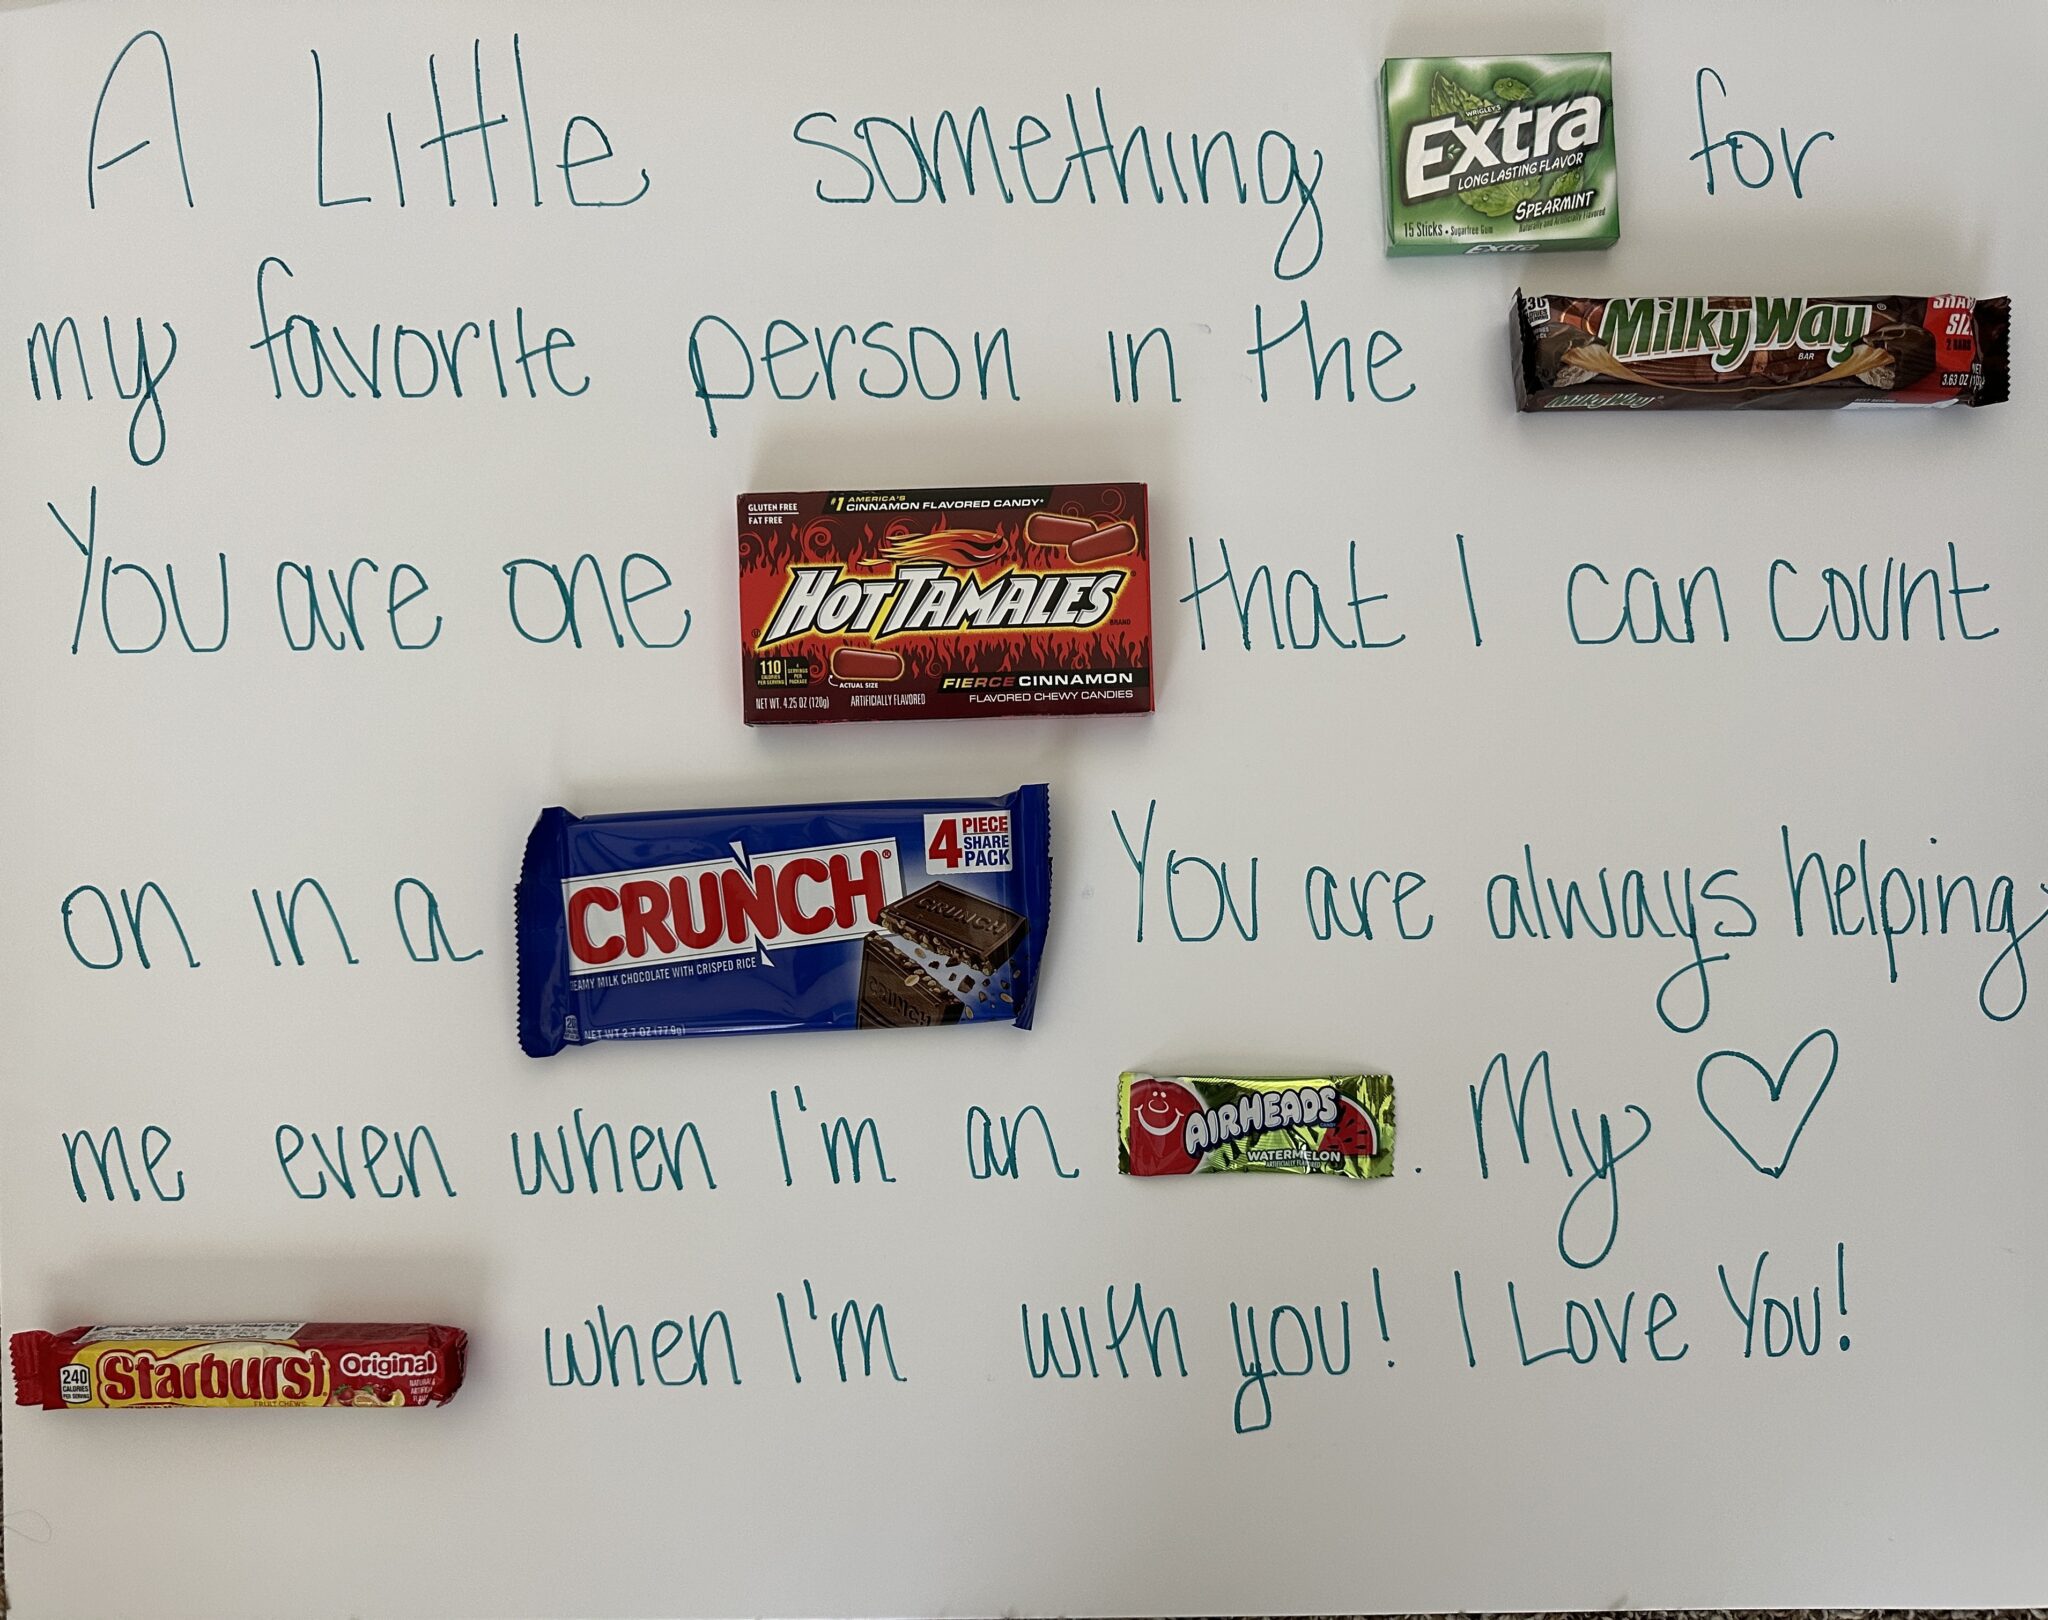 A Little something WRIGLEY'S Extra LONG LASTING FLAVOR SPEARMINT 15 Sticks • Sugarfree Gum Naturally and Artificially Flavored Extra for
my favorite person in the 230 CALORIES MilkyWay BAR SHARE SIZE 2 BARS NET 3.63 OZ MilkyWay
You are one GLUTEN FREE FAT FREE #1 AMERICA'S CINNAMON FLAVORED CANDY* HOT TAMALES BRAND 110 CALORIES PER SERVING 4 SERVINGS PER PACKAGE ACTUAL SIZE FIERCE CINNAMON FLAVORED CHEWY CANDIES NET WT. 4.25 OZ (120g) ARTIFICIALLY FLAVORED that I can count
on in a CRUNCH 4 PIECE SHARE PACK CREAMY MILK CHOCOLATE WITH CRISPED RICE NET WT 2.7 OZ (77.9g) CRUNCH CRUNCH You are always helping
me even when I'm an AIRHEADS CANDY WATERMELON ARTIFICIALLY FLAVORED . My ♡
240 CALORIES PER SERVING Starburst Original FRUIT CHEWS when I'm with you! I Love You!